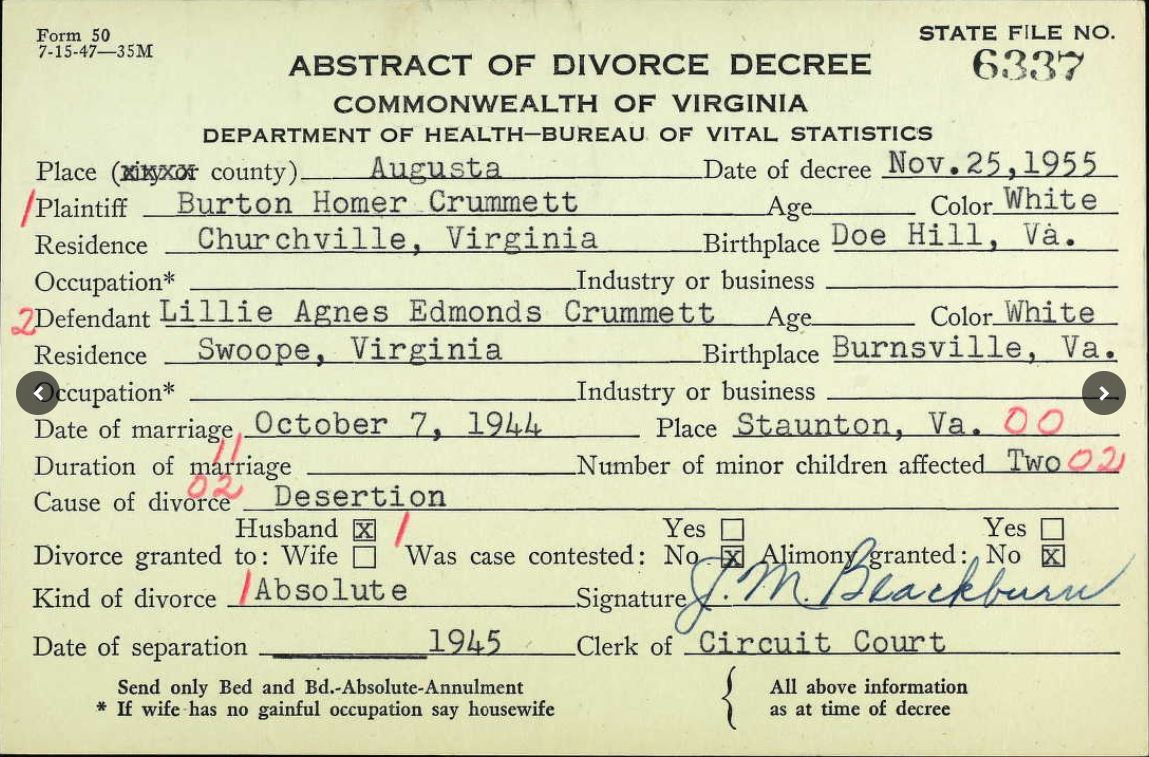 Form 50
7-15-47—35M
STATE FILE NO.
6337
ABSTRACT OF DIVORCE DECREE
COMMONWEALTH OF VIRGINIA
DEPARTMENT OF HEALTH—BUREAU OF VITAL STATISTICS
Place (city or county) Augusta Date of decree Nov.25,1955
1 Plaintiff Burton Homer Crummett Age Color White
Residence Churchville, Virginia Birthplace Doe Hill, Va.
Occupation* Industry or business
2 Defendant Lillie Agnes Edmonds Crummett Age Color White
Residence Swoope, Virginia Birthplace Burnsville, Va.
Occupation* Industry or business
Date of marriage October 7, 1944 Place Staunton, Va. 00
11
Duration of marriage Number of minor children affected Two 02
02
Cause of divorce Desertion
Husband x 1 Yes Yes
Divorce granted to: Wife Was case contested: No x Alimony granted: No x
Kind of divorce 1 Absolute Signature J. M. Blackburn
Date of separation 1945 Clerk of Circuit Court
Send only Bed and Bd.-Absolute-Annulment All above information
* If wife has no gainful occupation say housewife as at time of decree